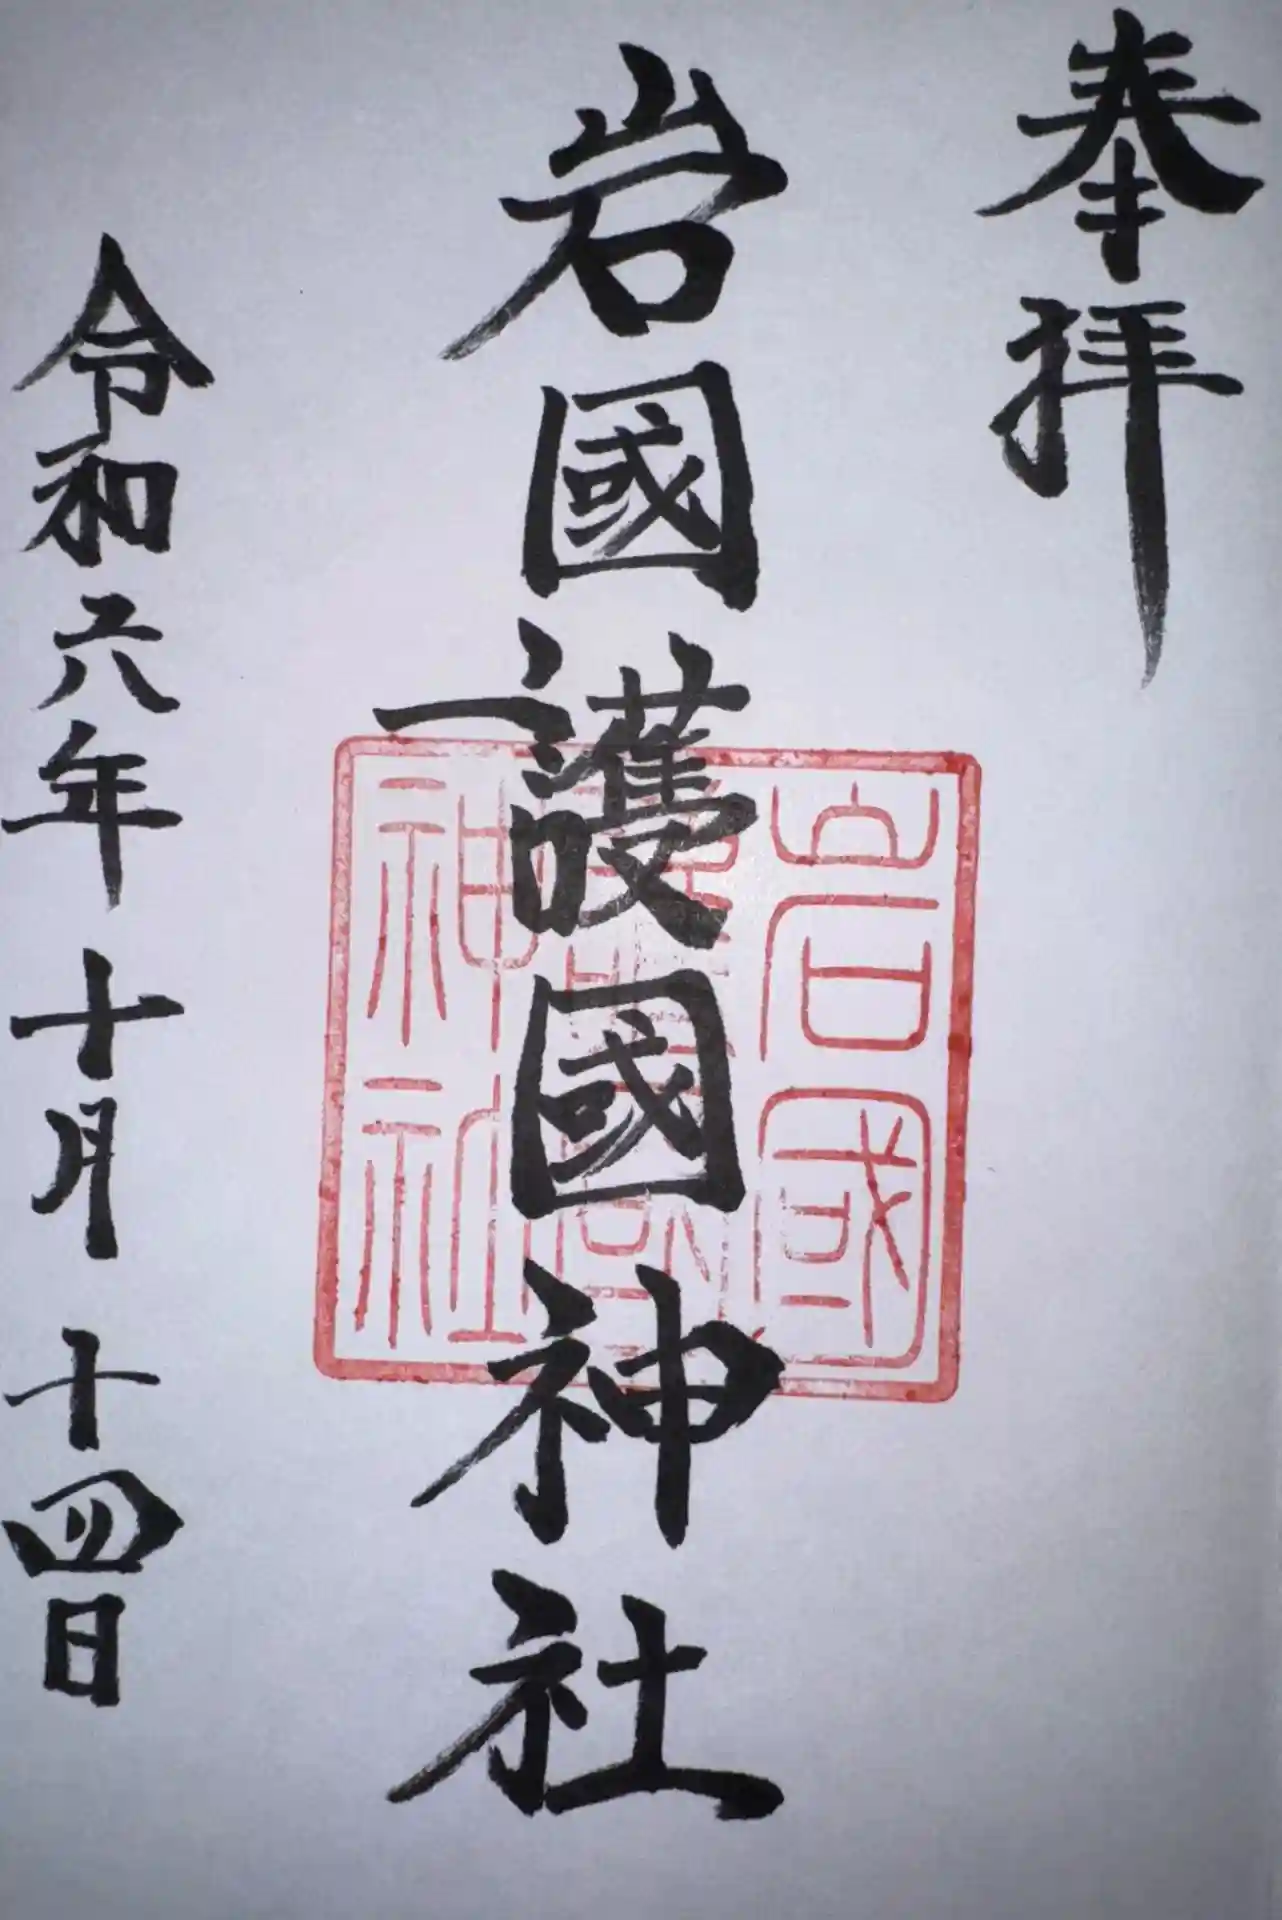 奉拝
岩國護國神社
岩國
護國
神社
令和六年十月十四日